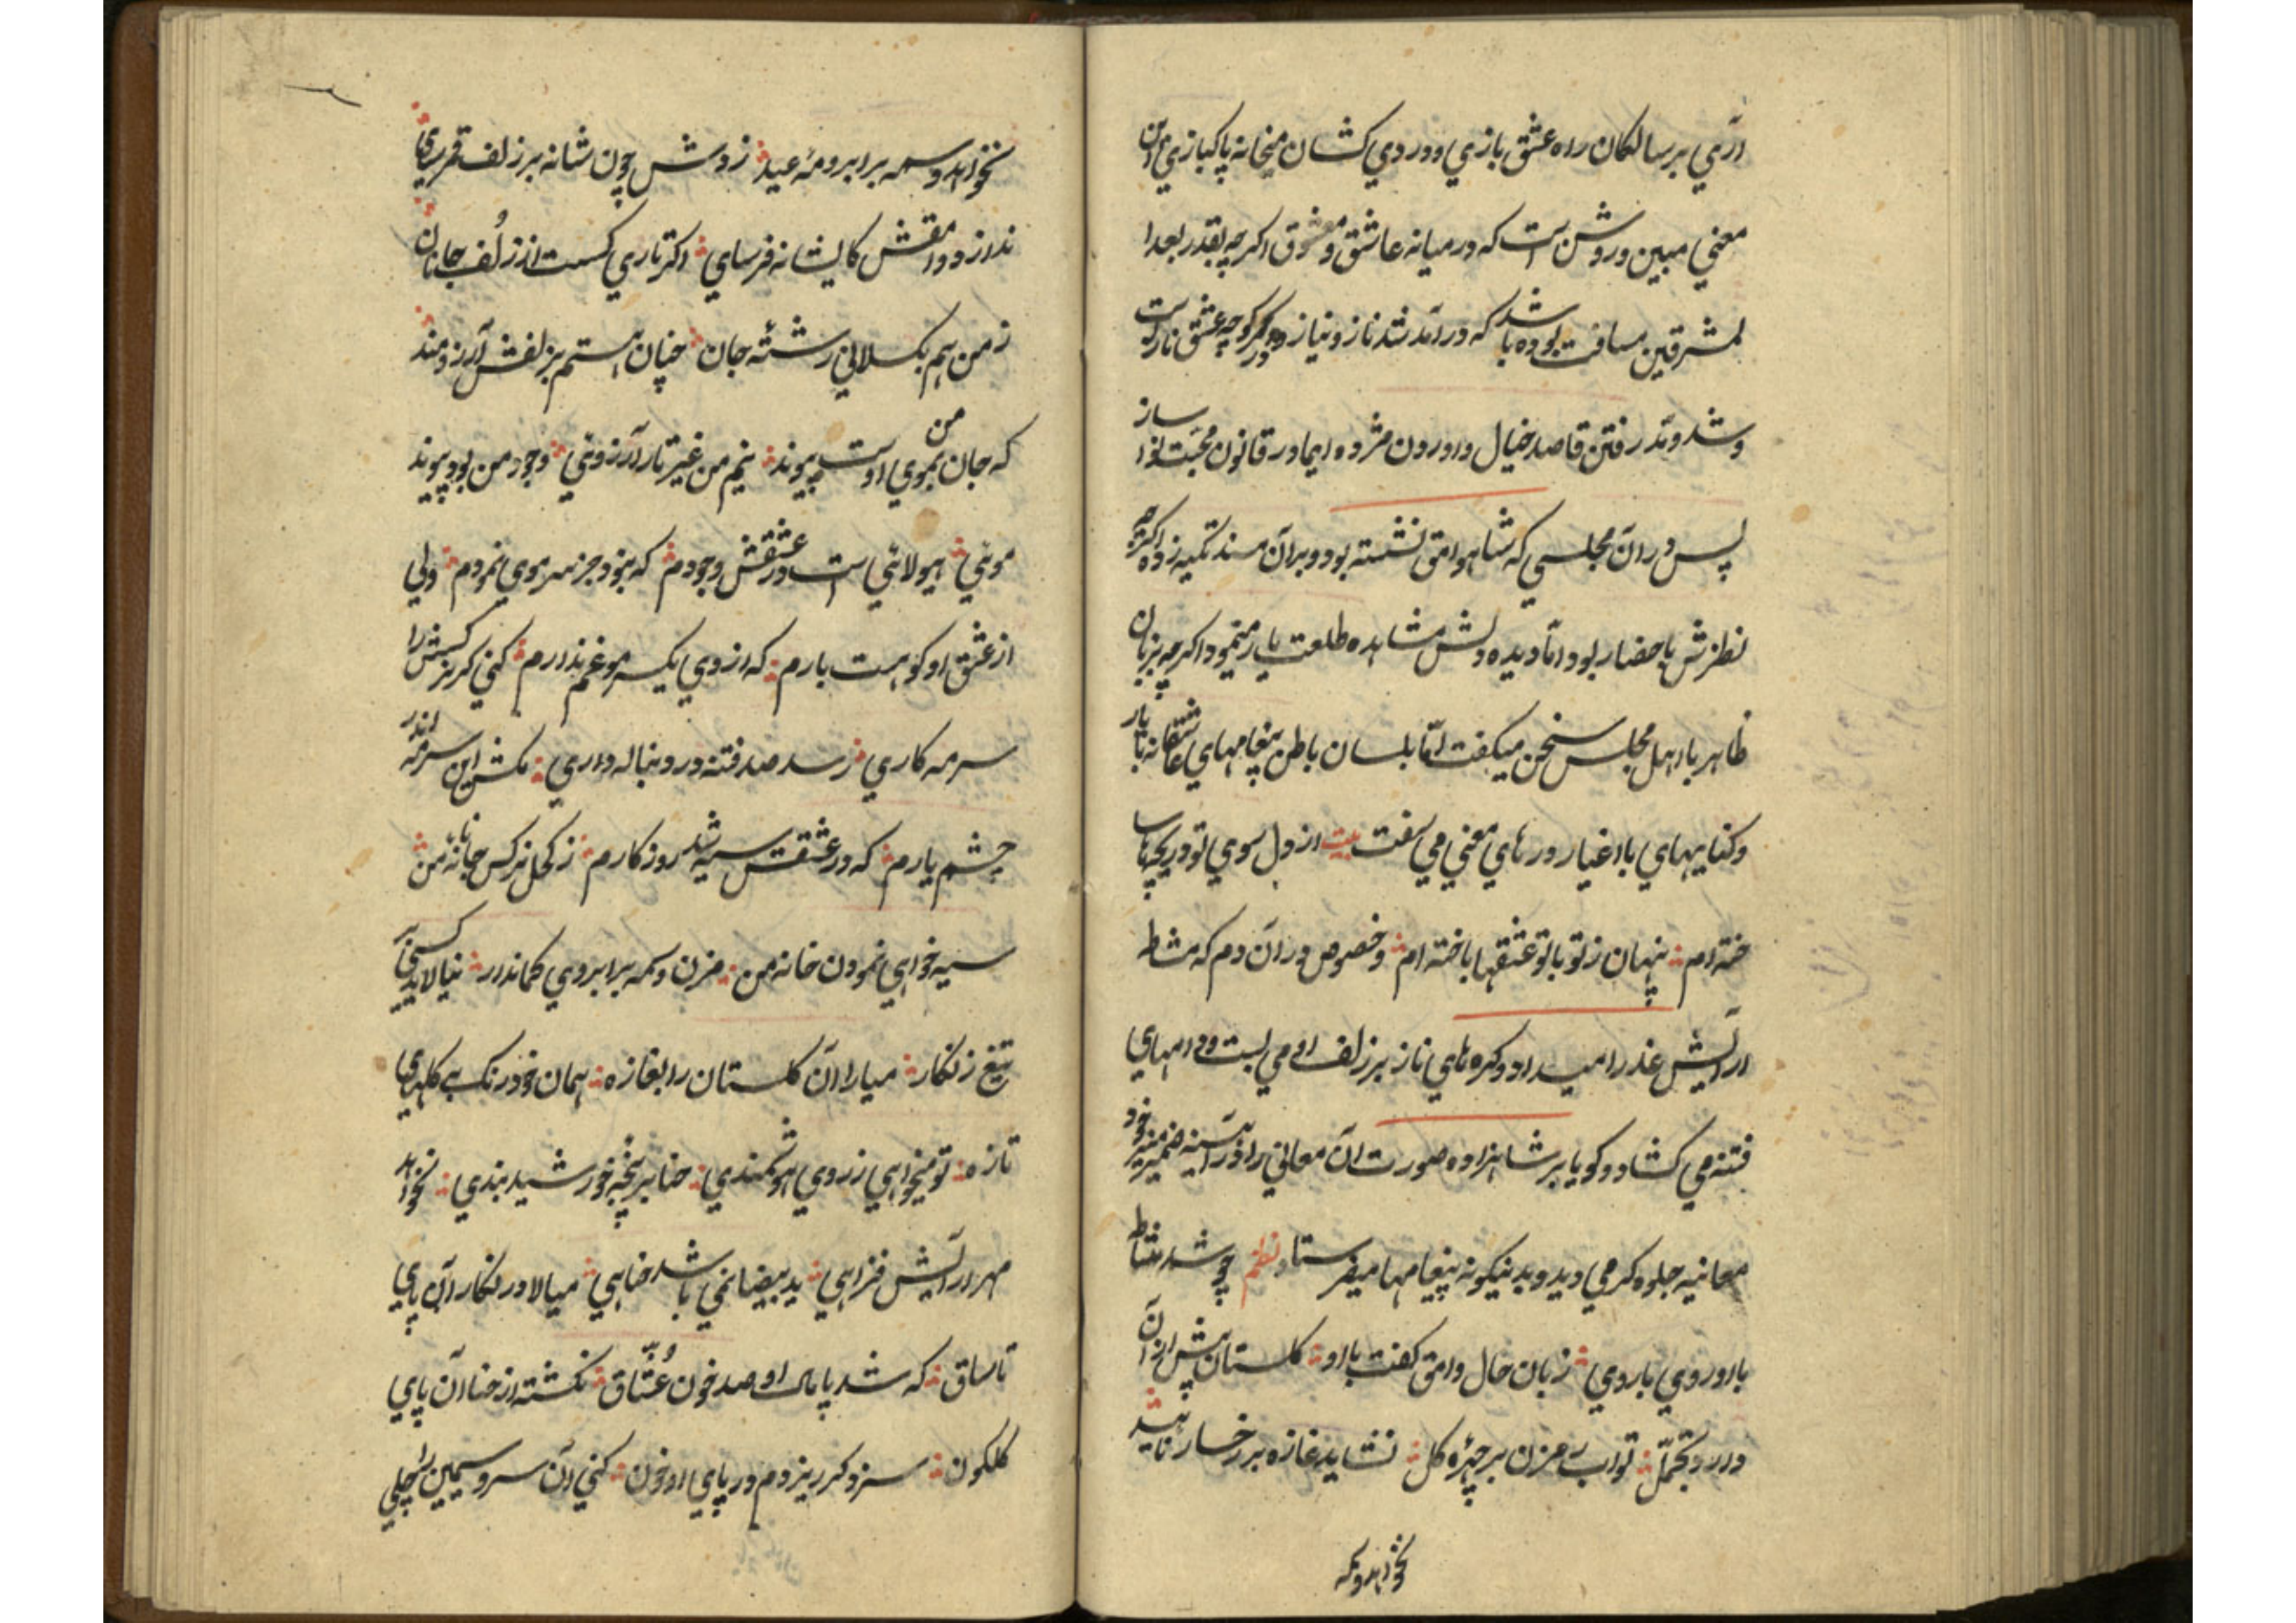 آری بر سالکان راه عشق بازی و دردی کشان میخانه پاکبازی این
معنی مبین و روشن است که در میانه عاشق و معشوق اگرچه بقدر بعد
لمشرقین مسافت بوده باشد که در آمد شد ناز و نیاز در کوچه عشق باز است
و شد و مد رفتن قاصد خیال و اوردن مژده ایما در قانون محبت ساز
پس در ان مجلسی که شاه وامق نشسته بود و بران مسند تکیه زده اگرچه
نظرش باحضار بود اما دیده دلش مشاهده طلعت یار مینمود اگرچه بزبان
ظاهر با اهل مجلس سخن میگفت اما بلسان باطن پیغامهای عاشقانه با یار
و کنایهای با اغیار درهای معنی می سفت بیت از دل سوی تو دریچها سا
خته ام پنهان ز تو با تو عشقها باخته ام و خصوص دران دم که مشاطه
ارایش عذرا میداد و گره های ناز بر زلف او می بست و دامهای
فتنه می گشاد و گویا بر شاهزاده صورت ان معانی را در آیینه ضمیر منیر خود
معاینه جلوه گر می دید و بدینگونه پیغامها میفرستاد نظم چو شد مشاطه
با او روی با روی زبان حال وامق گفت با او گلستان پیش ازان
دارد تجمل تو اب رو مزن بر چهره گل نشاید غازه بر رخسار ناهید
نخواهد وسمه
نخواهد وسمه بر ابرو مه عید ز دوشش چون شانه بر زلف قمرسای
ندارد وامقش کایشانه فرسای اگر تاری گسست از زلف جانان
ز من هم بگسلانی رشته جان چنان هستم بزلفش آرزومند
که جان من بموی اوست پیوند نیم من غیر تار آرزوئی وجود من بود پیوند
موئی هیولائی است در عشقش وجودم که نبود جز سر موی نمودم ولی
از عشق او کوهست بارم که از وی یک سر مو غم ندارم کنی گر نرگسش را
سرمه کاری رسد صد فتنه در دنباله داری مکش این سرمه اندر
چشم یارم که در عشقت سیه شد روزگارم ز کحل نرگس جانانه من
سیه خواهی نمودن خانه من مزن وسمه بر ابروی کماندار نیالاید کسی بر
تیغ زنگار میارا ان گلستان را بغازه همان خود رنگ به گلهای
تازه تو میخواهی ز روی هوشمندی حنا بر پنجه خورشید بندی نخواهد
مهر ارایش فزاهی ید بیضا نمی باشد حناهی میالا در نگار ان پای
تا ساق که شد پامال او صد خون عشاق نگشته از حنا ان پای
گلگون سزد گر ریزدم در پای او خون کنی ان سرو سیمین را چلی